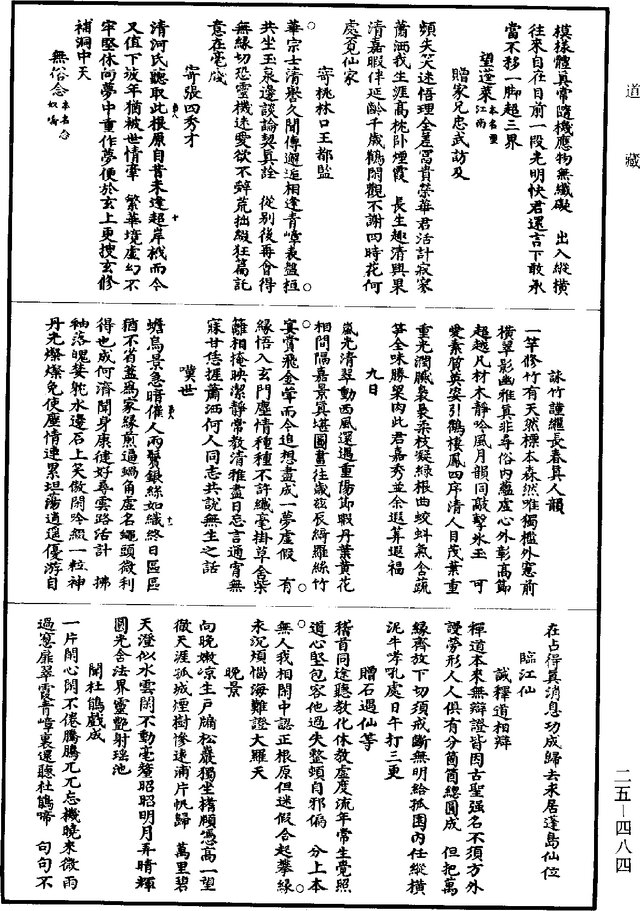 道藏
模樣體真常隨機應物無纖礙　出入縱橫
往來自在目前一段光明快君還言下敢承
當不移一腳超三界
望蓬萊本名望江南
贈家兄忠武訪及
頻失笑迷悟理全差富貴榮華君活計寂寥
蕭洒我生涯高枕卧煙霞　長生趣清興果
清嘉暇伴延齡千歲鶴閑觀不謝四時花何
處覓仙家
寄桃林口王都監
華宗士清譽久聞傳邂逅相逢青嶂表盤桓
共坐玉泉邊談論契真詮　從别後再會得
無緣切恐靈機迷愛欲不辭荒拙綴狂篇記
意在毫牋
寄張四秀才
清河氏聽取此根原自昔未達超岸栰而今
又值下坡年猶被世情牽　繁華境虛幻不
牢堅休向夢中重作夢便於玄上更搜玄修
補洞中天
無俗念本名念奴嬌
詠竹謹繼長春真人韻
一竿修竹有天然標本森然唯獨檻外窓前
橫翠影幽雅真非尋俗内藴虛心外彰高節
超越凡材木静吟風月韻同敲擊氷玉　可
愛素質英姿引鶴棲鳳四序清人目茂葉重
重光潤膩裊裊柔枝凝綠根曲蛟虯氣含蔬
筭全味勝梁肉此君嘉秀並余遐筭遐福
九日
嵐光清翠動西風還遇重陽節暇丹葉黄花
相間隔嘉景真堪圖畫往歲兹辰綺羅絲竹
宴賞飛金斝而今追想盡成一夢虛假　有
緣悟入玄門塵情種種不許纖毫掛草舍柴
籬相掩映潔静常教清雅盡日忘言通宵無
寐甘恁捱蕭洒何人同志共説無生之話
嘆世
蟾烏景急暗催人兩鬢銀絲如織終日區區
猶不省葢爲家緣煎逼蝸角虛名蠅頭微利
得也成何濟聞身康健好尋雲路活計　拂
袖落魄婪䤚水邊石上笑傲閑吟綴一粒神
丹光燦燦免使塵情連累坦蕩逍遥優游自
在占得真消息功成歸去來居蓬島仙位
臨江仙
誡釋道相辯
禪道本來無辯證皆因古聖强名不須方外
謾勞形人人俱有分箇箇總圓成　但把萬
緣齊放下切須戒斷無明給孤園内任縱橫
泥牛孝孔處日午打三更
贈石遇仙等
稽首同途聽教化休教虛度流年常生覺照
道心堅包容他過失整頓自邪偏　分上本
無人我相閑中認正根原但迷假合起攀緣
永沉煩惱海難證大羅天
晚景
向晚嫩凉生戸牖松巖獨坐搘頤憑高一望
徹天涯孤城煙樹慘遠浦片帆歸　萬里碧
天澄似水雲閑不動毫釐昭昭明月弄晴輝
圓光含法界靈艷射瑶池
聞杜鵑戲成
一片閑心閑不倦騰騰兀兀忘機曉來微雨
過窓扉翠霞青嶂裏還聽杜鵑啼　句句不
二五—四八四